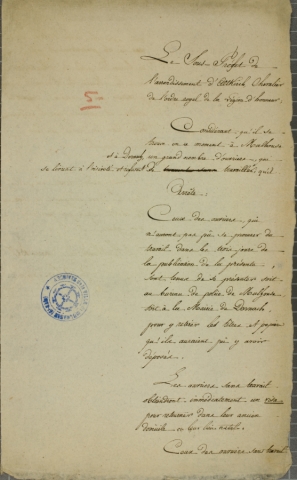 Le Sous Préfet de
l'arrondissement d'Altkirch Chevalier
de l'ordre royal de la légion d'honneur,
Considérant, qu'il se
trouve en ce moment à Mulhouse
et à Dornach, un grand nombre d'ouvriers, qui
se livrent à l'oisiveté et refusent de travailler,
Arrête:
Ceux des ouvriers qui
n'auront pas pû se procurer du
travail dans les trois jours de
la publication de la présente,
sont tenus de se présenter soit
au bureau de police de Mulhouse
soit à la Mairie de Dornach,
pour y retirer les titres et papiers
qu'ils auraient pû y avoir
déposés.
Les ouvriers sans travail
obtiendront immédiatement un visa
pour retourner dans leur ancien
domicile ou leur lieu natal.
Ceux des ouvriers sans travail